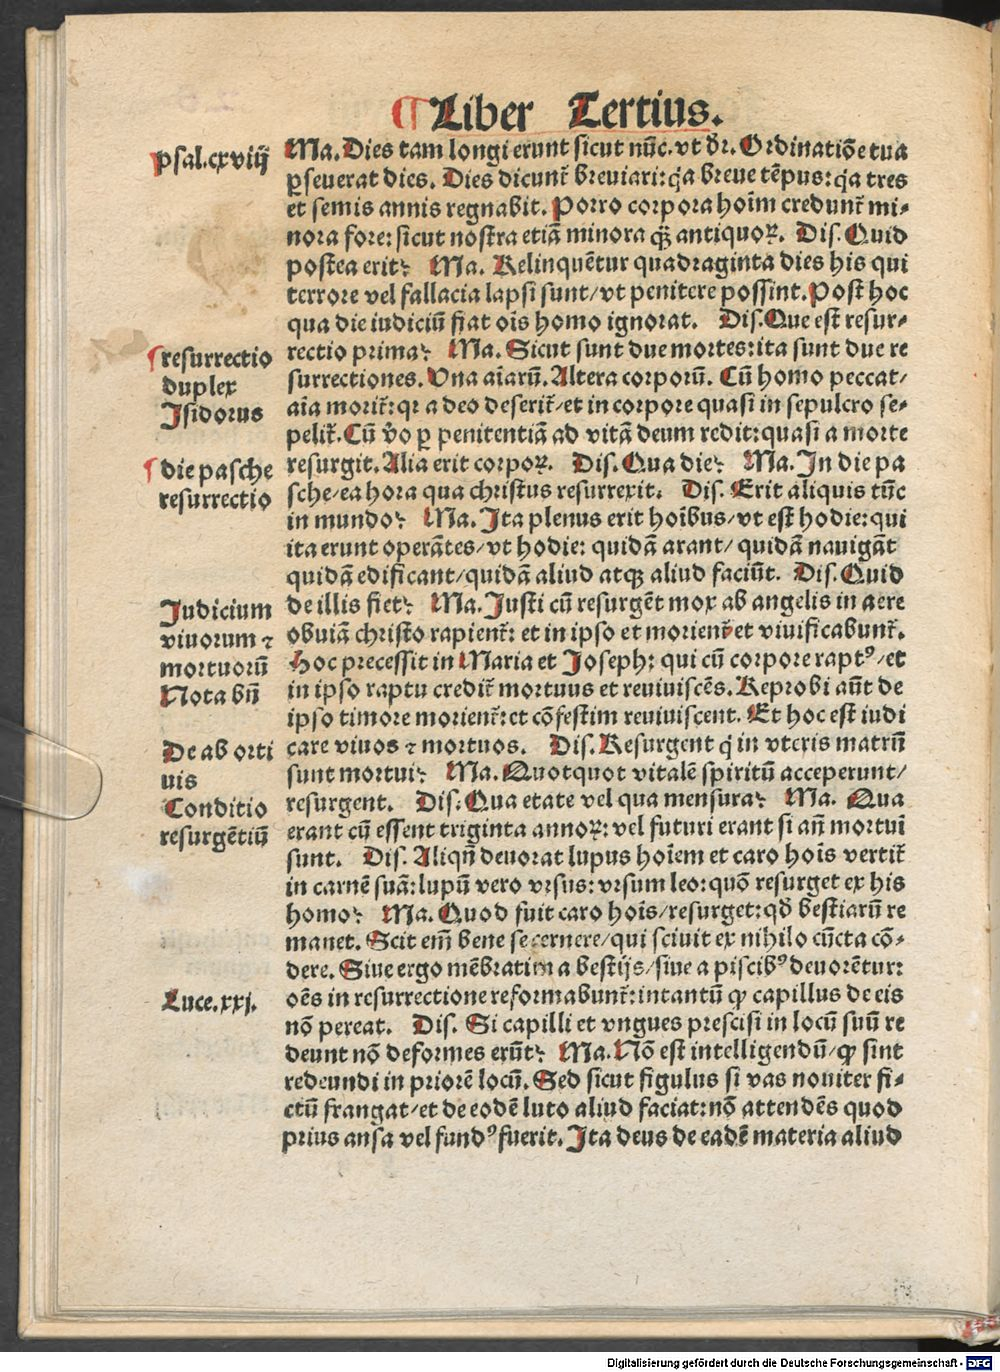 ¶ Liber Tertius.
psal.cxviij
Ma. Dies tam longi erunt sicut nūc. vt dr̄. Ordinatiōe tua
ꝑseuerat dies. Dies dicunt̄ breuiari: qꝛ a breue tēpus: qꝛ a tres
et semis annis regnabit. Porro corpora hoīm credunt̄ mi-
nora fore: sicut nostra etiā minora qꝫ antiquoꝝ. Dis. Quid
postea erit? Ma. Relinquētur quadraginta dies his qui
terrore vel fallacia lapsi sunt/vt penitere possint. Post hoc
qua die iudiciū fiat oīs homo ignorat. Dis. Que est resur-
¶ resurrectio
duplex
Isidorus
rectio prima? Ma. Sicut sunt due mortes: ita sunt due re
surrectiones. Una aīarū. Altera corporū. Cū homo peccat/
aīa morit̄: qꝛ a deo deserit̄/et in corpore quasi in sepulcro se-
pelit̄. Cū v̊o ꝑ penitentiā ad vitā deum redit: quasi a morte
¶ die pasche
resurrectio
resurgit. Alia erit corpoꝝ. Dis. Qua die? Ma. In die pa
sche/ea hora qua christus resurrexit. Dis. Erit aliquis tūc
in mundo? Ma. Ita plenus erit hoībus/vt est hodie: qui
ita erunt operātes/vt hodie: quidā arant/ quidā nauigāt
quidā edificant/quidā aliud atqꝫ aliud faciūt. Dis. Quid
Judicium
viuorum ⁊
mortuorū
Nota bn̄
de illis fiet? Ma. Justi cū resurgēt mox ab angelis in aere
obuiā christo rapient̄: et in ipso et morient̄ et viuificabunt̄.
Hoc precessit in Maria et Joseph: qui cū corpore raptꝰ/et
in ipso raptu credit̄ mortuus et reuiuiscēs. Reprobi aūt de
ipso timore morient̄: et cōfestim reuiuiscent. Et hoc est iudi
De ab orti
uis
Conditio
resurgētiū
care viuos ⁊ mortuos. Dis. Resurgent q̄ in vteris matrū
sunt mortui? Ma. Quotquot vitalē spiritū acceperunt/
resurgent. Dis. Qua etate vel qua mensura? Ma. Qua
erant cū essent triginta annoꝝ: vel futuri erant si añ mortui
sunt. Dis. Aliqn̄ deuorat lupus hoīem et caro hoīs vertit̄
in carnē suā: lupū vero vrsus: vrsum leo: quō resurget ex his
homo? Ma. Quod fuit caro hoīs/resurget: qd̄ bestiarū re
manet. Scit em̄ bene secernere/qui sciuit ex nihilo cūcta cō-
dere. Siue ergo mēbratim a bestijs/siue a piscibꝰ deuorētur:
Luce.xxj.
oēs in resurrectione reformabunt̄: intantū ꝙ capillus de eis
nō pereat. Dis. Si capilli et vngues prescisi in locū suū re
deunt nō deformes erūt? Ma. Nō est intelligendū/ꝙ sint
redeundi in priorē locū. Sed sicut figulus si vas nouiter fi-
ctū frangat/et de eodē luto aliud faciat: nō attendēs quod
prius ansa vel fundꝰ fuerit. Ita deus de eadē materia aliud
Digitalisierung gefördert durch die Deutsche Forschungsgemeinschaft - DFG